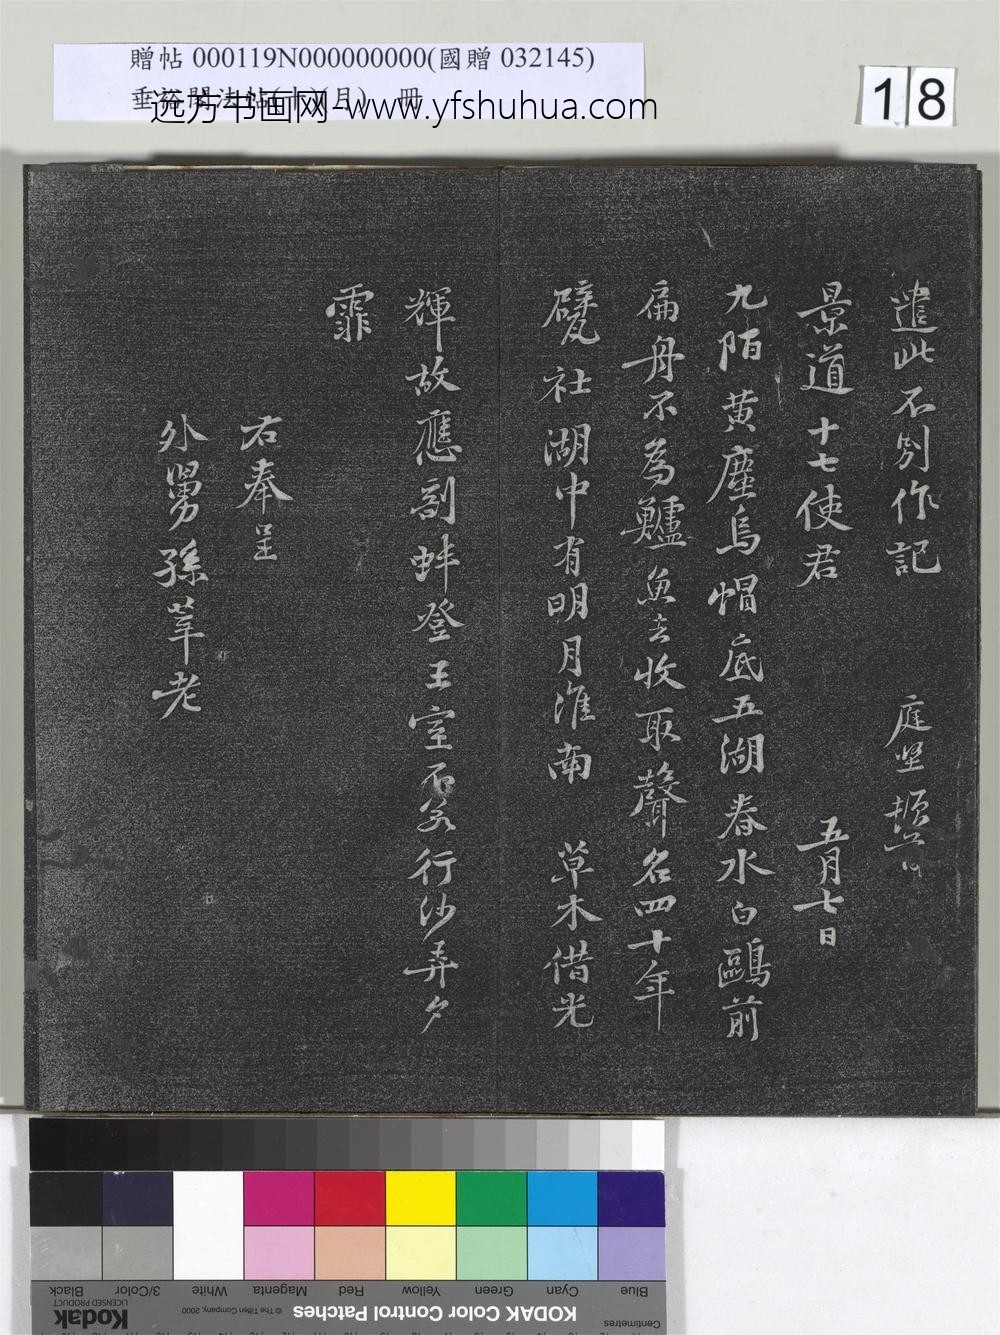 贈帖 000119N000000000(國贈 032145)
远方书画网-www.yfshuhua.com
18
遣此不別作記 庭堅
景道十七使君 五月七日
九陌黃塵烏帽底五湖春水白鷗前
扁舟不為鱸魚去收取聲名四十年
甓社湖中有明月淮南 草木借光
輝故應剖蚌登王室不若行沙弄夕
霏
右奉呈
外舅孫莘老
Black
3/Color
White
Magenta
Red
Yellow
Green
Cyan
Blue
Kodak
LICENSED PRODUCT
© The Tiffen Company, 2000
KODAK Color Control Patches
Centimetres